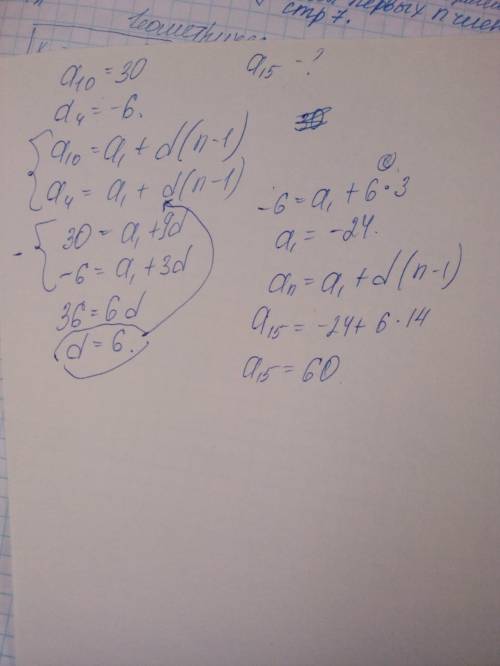 первых n член
стр 7.
a₁₀ = 30
a₄ = -6.
a₁₀ = a₁ + d(n-1)
a₄ = a₁ + d(n-1)
30 = a₁ + 9d
-
-6 = a₁ + 3d
36 = 6d
d = 6.
a₁₅ - ?
-6 = a₁ + 6 · 3
a₁ = -24.
aₙ = a₁ + d(n-1)
a₁₅ = -24 + 6 · 14
a₁₅ = 60